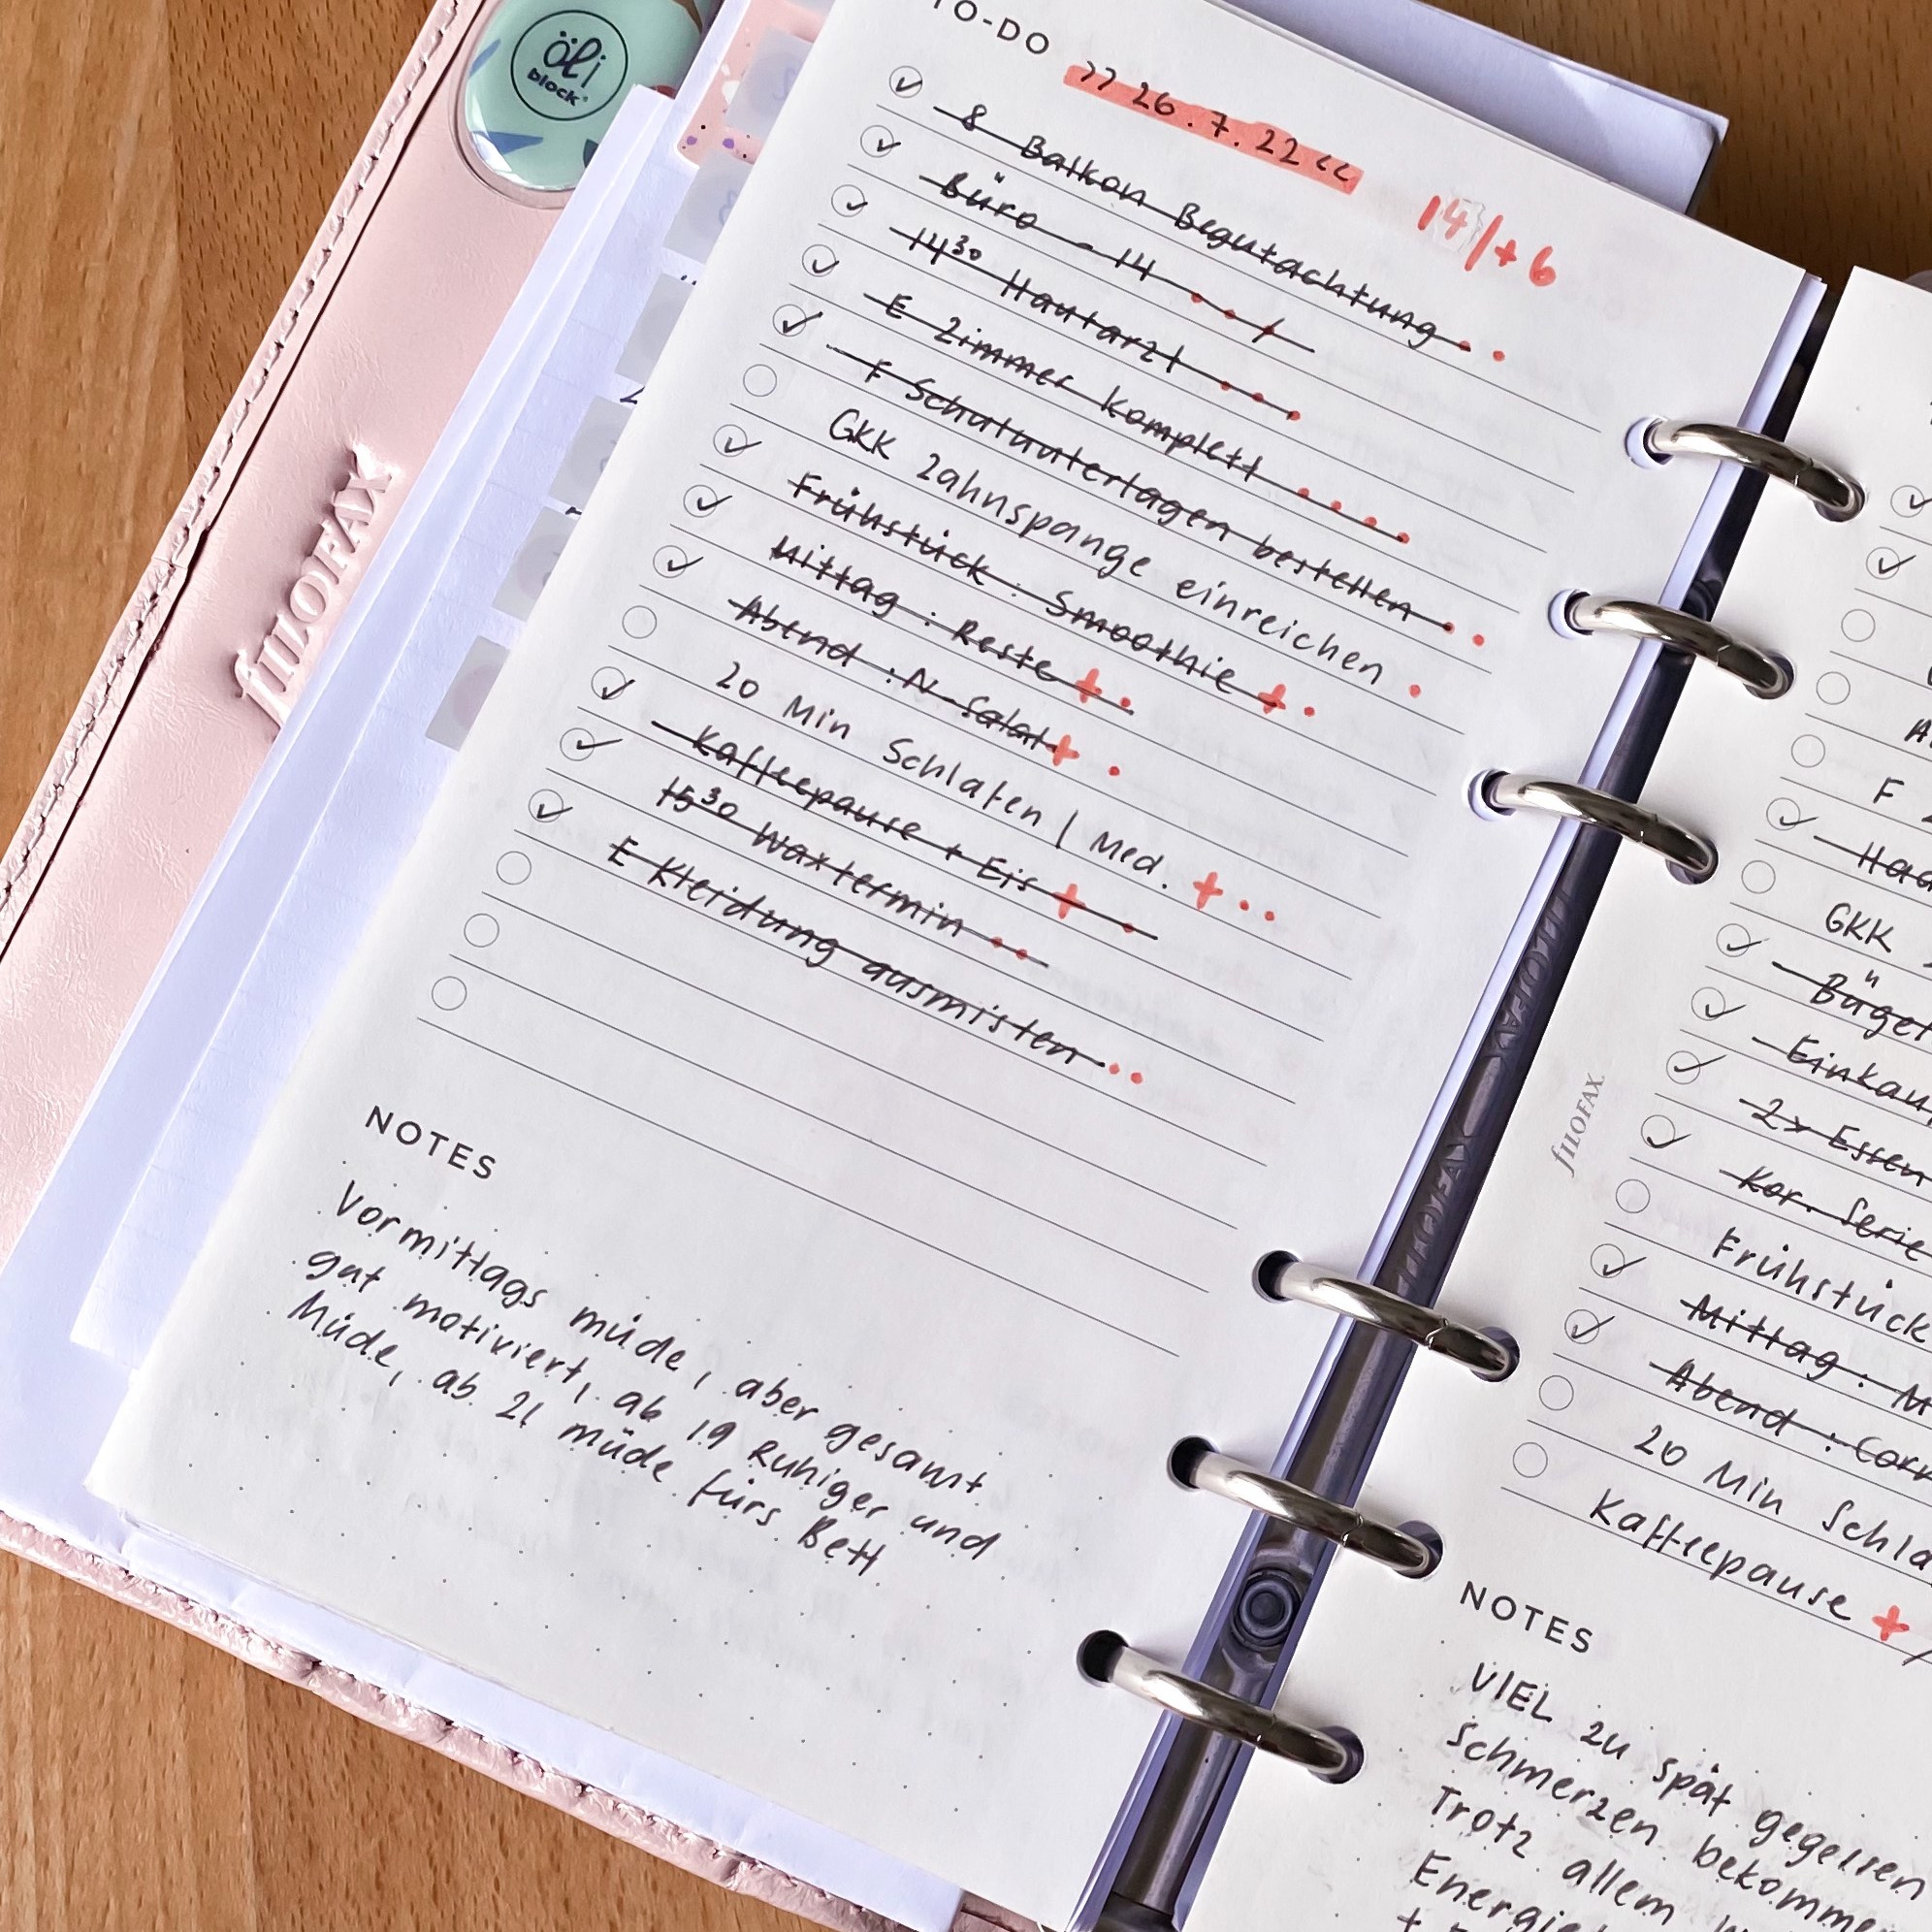 öli
block
FILOFAX
TO-DO
>> 26.7.22 <<
14/+6
8 Balkon Begutachtung
Büro - 14
14³⁰ Hautarzt
E Zimmer komplett
F Schulunterlagen bestellen
GKK Zahnspange einreichen
Frühstück: Smoothie +
Mittag: Reste +
Abend: N-Salat +
20 Min Schlafen / Med. +
Kaffeepause + Eis +
15³⁰ Waxtermin
E Kleidung ausmisten
NOTES
Vormittags müde, aber gesamt
gut motiviert, ab 19 Ruhiger und
Müde, ab 21 müde fürs Bett
FILOFAX
FILOFAX
F
GKK
Kor. Serie
2x Essen
Frühstück
Mittag:
Abend:
20 Min
Kaffeepause +
NOTES
VIEL zu spät gegessen
Schmerzen
Trotz allem